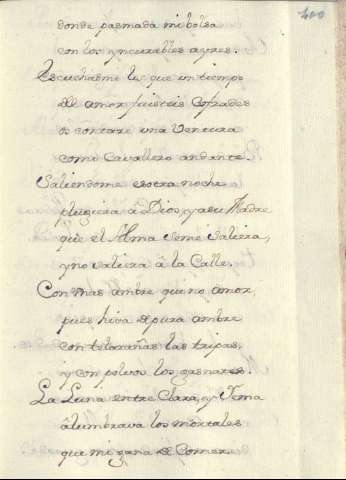 400
donde pasmada mi bolsa
con los yncurables ayres.
Escuchadmi los que un tiempo
de amor fuisteis Cofrades
os contare una Ventura
como Cavallero andante.
Saliendome esotra noche
plugiera â Dios, y a su Madre
que el Alma seme saliera,
y no saliera â la Calle.
Con mas ambre que no amor,
pues hiva de pura ambre
con telarañas las tripas,
y con polvos los gasnates.
La Luna entre Clara, y Yema
âlumbrava los mortales
que mi gana de Comer